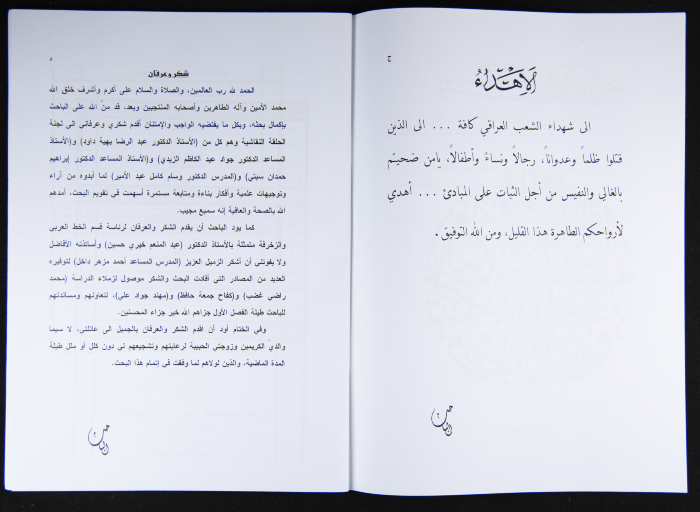 ج
الإهداء
الى شهداء الشعب العراقي كافة ... الى الذين
قتلوا ظلماً وعدواناً، رجالاً ونساءً وأطفالاً، يامن ضحيتم
بالغالي والنفيس من أجل الثبات على المبادئ ... أهدي
لأرواحكم الطاهرة هذا القليل، ومن الله التوفيق.
الباحث
د
شكر وعرفان
الحمد لله رب العالمين، والصلاة والسلام على أكرم وأشرف خلق الله
محمد الأمين وآله الطاهرين وأصحابه المنتجبين وبعد، قد منّ الله على الباحث
بإكمال بحثه، وبكل ما يقتضيه الواجب والإمتنان أقدم شكري وعرفاني الى لجنة
الحلقة النقاشية وهم كل من (الأستاذ الدكتور عبد الرضا بهية داود) و(الأستاذ
المساعد الدكتور جواد عبد الكاظم الزيدي) و(الأستاذ المساعد الدكتور إبراهيم
حمدان سبتي) و(المدرس الدكتور وسام كامل عبد الأمير) لما أبدوه من آراء
وتوجيهات علمية وأفكار بناءة ومتابعة مستمرة أسهمت في تقويم البحث، أمدهم
الله بالصحة والعافية إنه سميع مجيب.
كما يود الباحث أن يقدم الشكر والعرفان لرئاسة قسم الخط العربي
والزخرفة متمثلة بالأستاذ الدكتور (عبد المنعم خيري حسين) وأساتذته الأفاضل
ولا يفوتني أن أشكر الزميل العزيز (المدرس المساعد أحمد مزهر داخل) لتوفيره
العديد من المصادر التي أفادت البحث والشكر موصول لزملاء الدراسة (محمد
راضي غضب) و(كفاح جمعة حافظ) و(مهند جواد علي)، لتعاونهم ومساندتهم
للباحث طيلة الفصل الأول جزاهم الله خير جزاء المحسنين.
وفي الختام أود أن اقدم الشكر والعرفان بالجميل الى عائلتي، لا سيما
والديّ الكريمين وزوجتي الحبيبة لرعايتهم وتشجيعهم لي دون كلل أو ملل طيلة
المدة الماضية، والذين لولاهم لما وفقت في إتمام هذا البحث.
الباحث